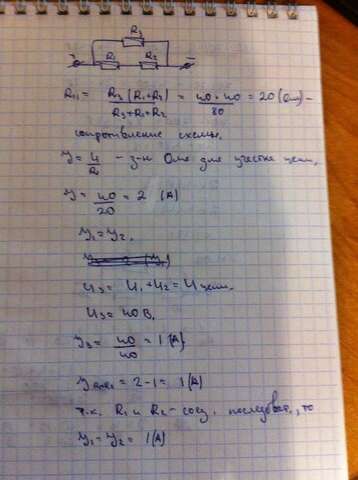 R3
R1 R2
+ −
R11 = R3 (R1+R2) / R3+R1+R2 = 40 · 40 / 80 = 20 (Ом) –
сопротивление схемы.
У = U / R – з-н Ома для участка цепи,
У = 40 / 20 = 2 (А)
У1 = У2.
U3 = U1 + U2 = U цепи.
U3 = 40 В.
У3 = 40 / 40 = 1 (А)
= 2 - 1 = 1 (А)
т.к. R1 и R2 – соед. последоват., то
У1 = У2 = 1 (А)